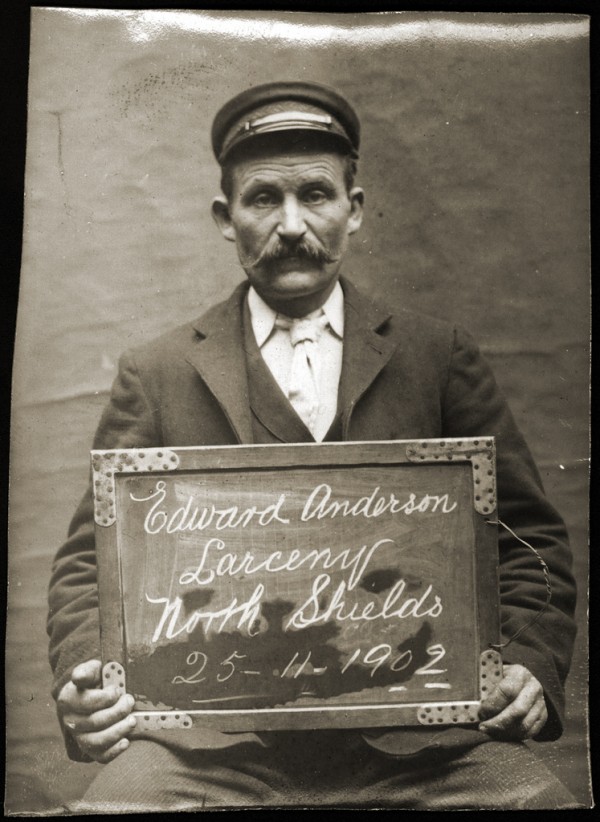 Edward Anderson
Larceny
North Shields
25-11-1902